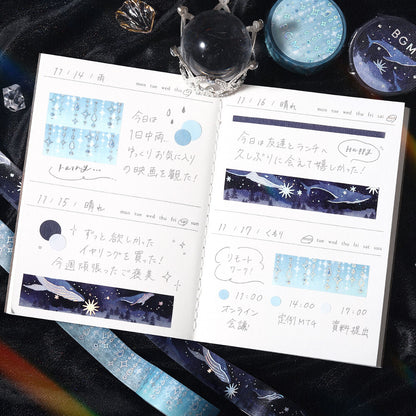 11 / 14 / 雨
mon tue wed thu fri sat sun
今日は
1日中雨
ゆっくりお気に入り
の映画を観た!
11 / 15 / 晴れ
mon tue wed thu fri sat sun
ずっと欲しかった
イヤリングを買った!
今週頑張ったご褒美
11 / 16 / 晴れ
mon tue wed thu fri sat sun
今日は友達とランチへ
久しぶりに会えて嬉しかった!
11 / 17 / くもり
mon tue wed thu fri sat sun
リモート
ワーク!
13:00
オンライン
会議
14:00
定例MTG
17:00
資料提出
BGM